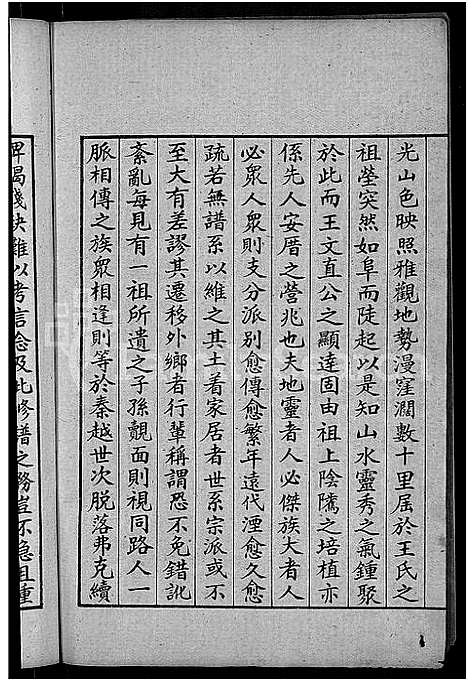 光山色映照雅觀地勢漫窪濶數十里屆於王氏之
祖塋突然如阜而陡起以是知山水靈秀之氣鍾聚
於此而王文直公之顯達固由祖上陰隲之培植亦
係先人安厝之營兆也夫地靈者人必傑族大者人
必衆人衆則支分派別愈傳愈繁年遠代湮愈久愈
疏若無譜系以維之其土着家居者世系宗派或不
至大有差謬其遷移外鄉者行輩稱謂恐不免錯訛
紊亂每見有一祖所遺之子孫覿面則視同路人一
脈相傳之族衆相逢則等於秦越世次脫落弗克續
碑碣殘缺難以考言念及此修譜之務豈不急且重